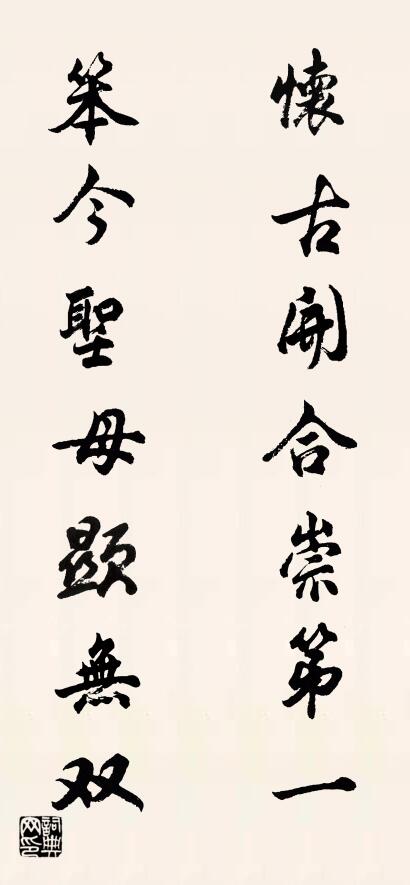 懷古開合崇第一
笨今聖母顯無双
詞典网印